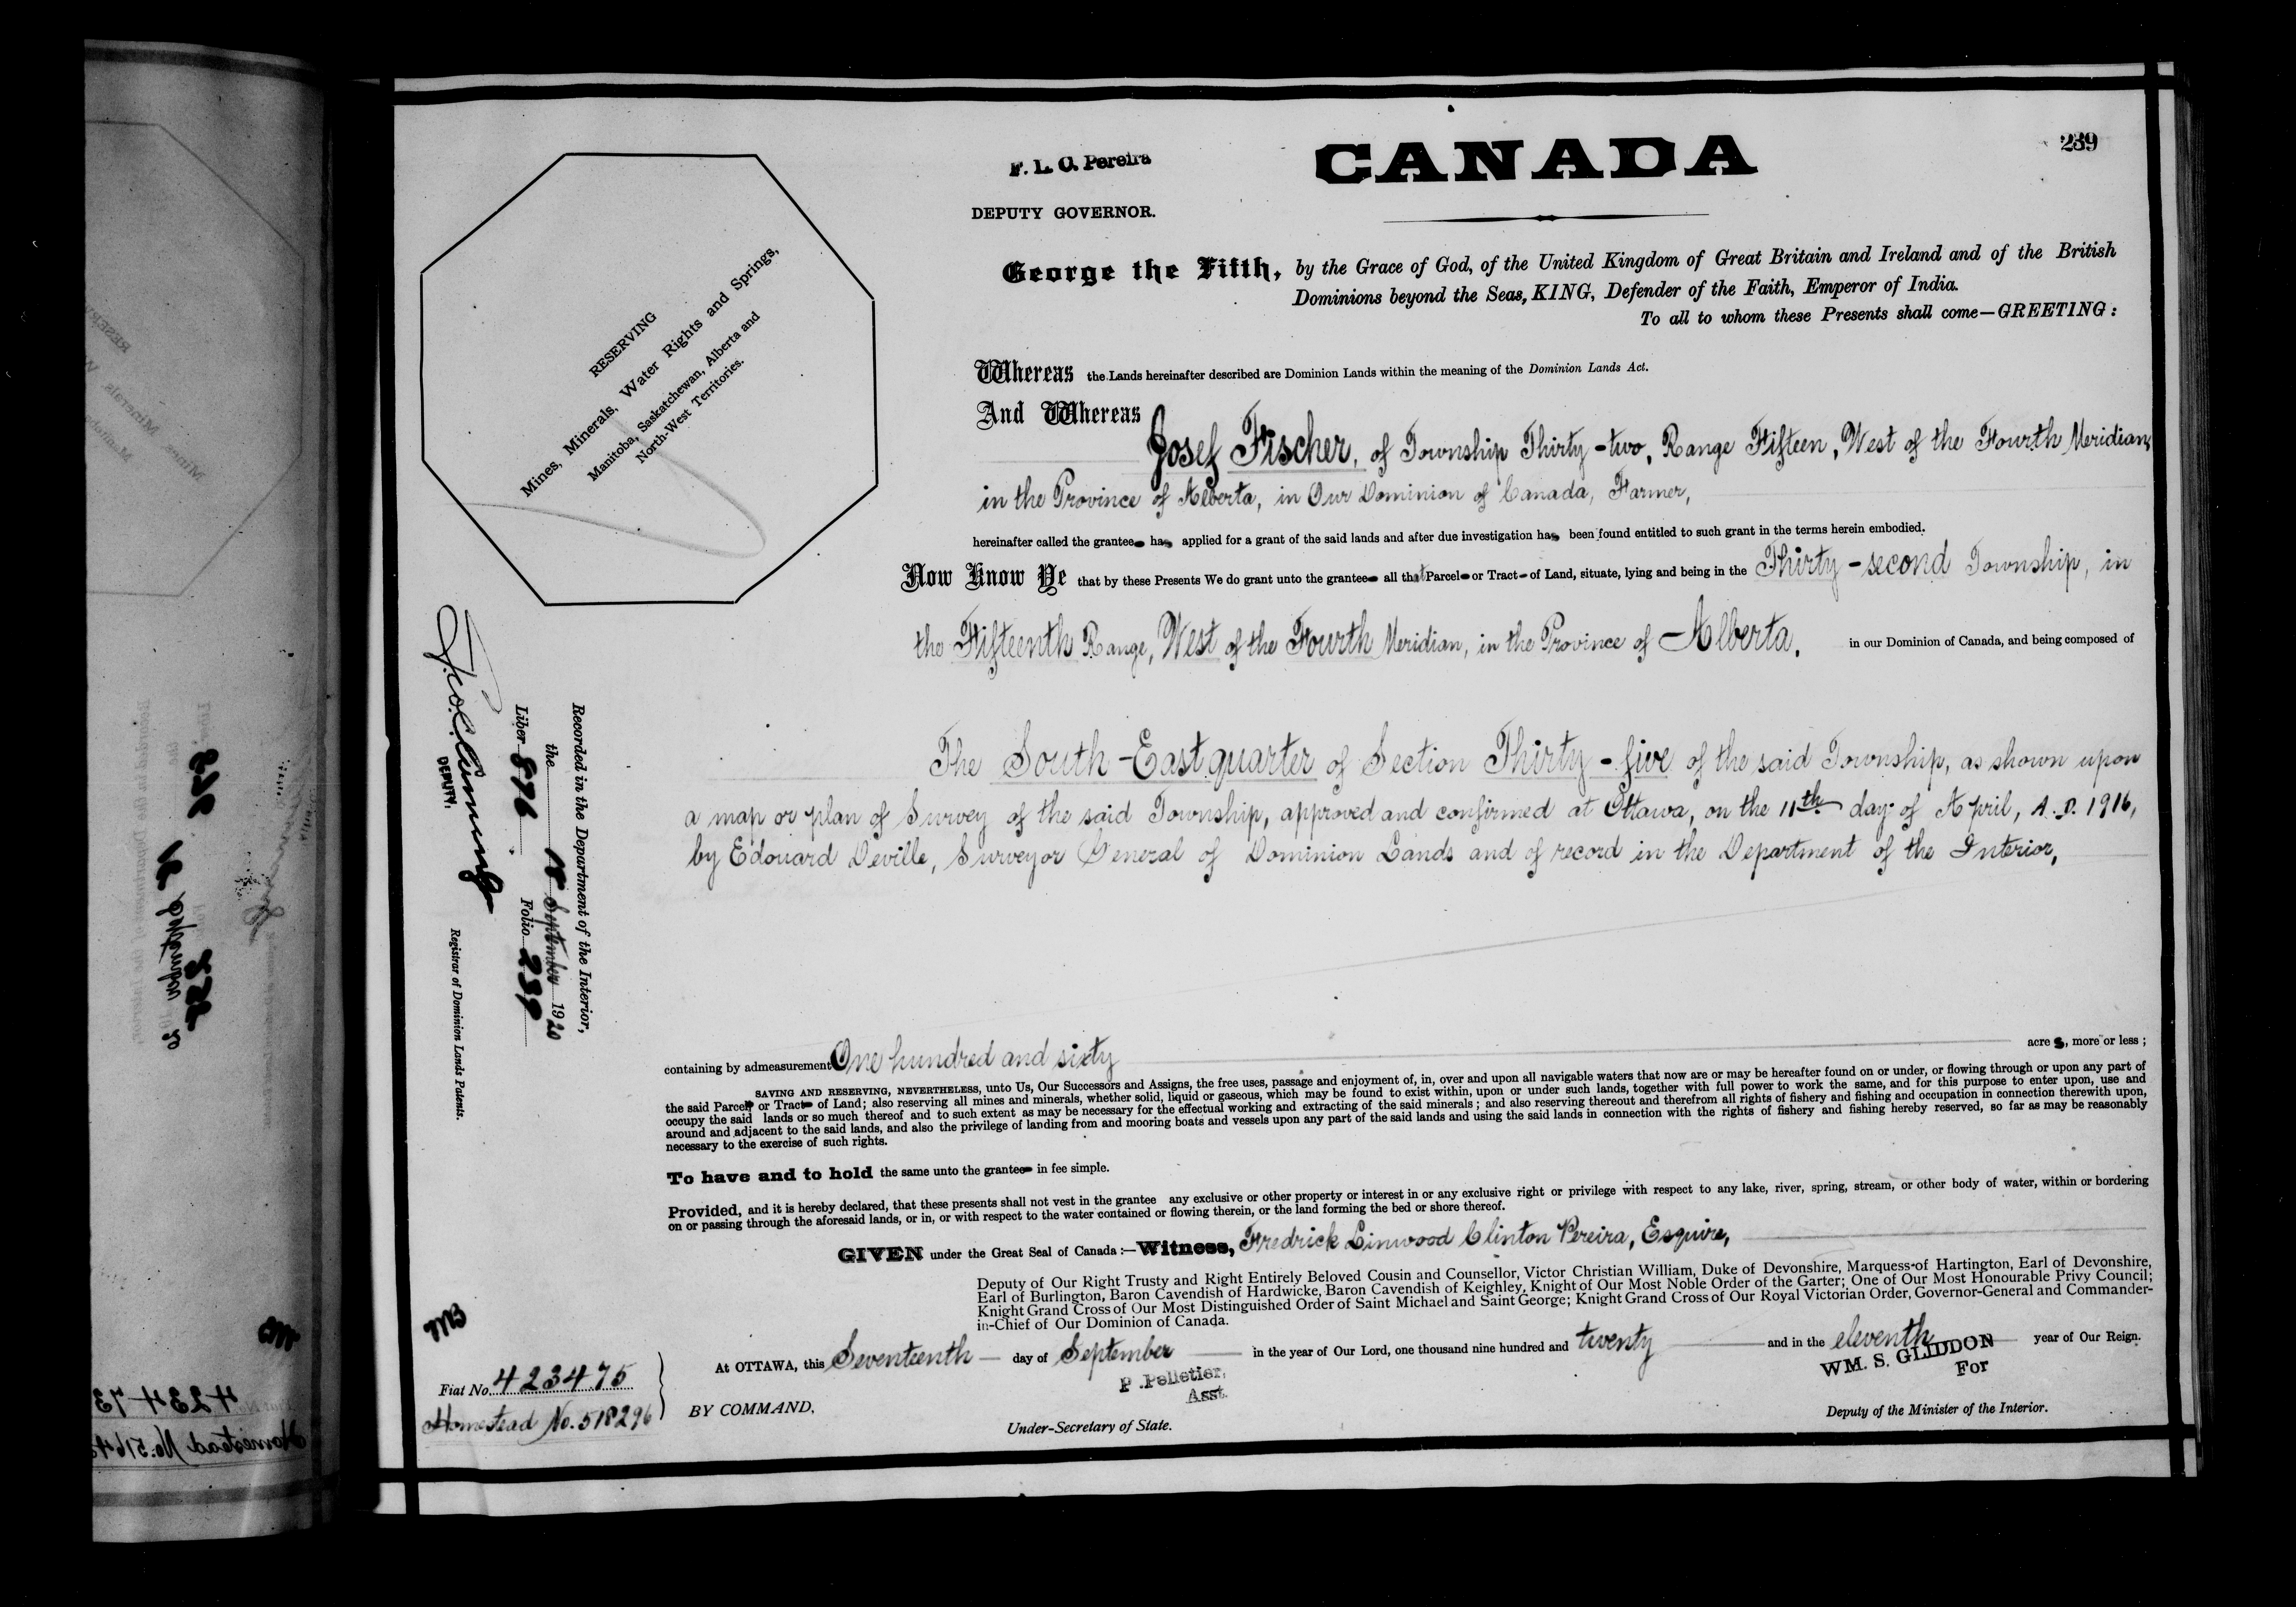 239
F. L. C. Pereira
CANADA
DEPUTY GOVERNOR.
George the Fifth, by the Grace of God, of the United Kingdom of Great Britain and Ireland and of the British
Dominions beyond the Seas, KING, Defender of the Faith, Emperor of India.
To all to whom these Presents shall come—GREETING:
RESERVING
Mines, Minerals, Water Rights and Springs,
Manitoba, Saskatchewan, Alberta and
North-West Territories.
Whereas the Lands hereinafter described are Dominion Lands within the meaning of the Dominion Lands Act.
And Whereas
Josef Fischer, of Township Thirty-two, Range Fifteen, West of the Fourth Meridian,
in the Province of Alberta, in Our Dominion of Canada, Farmer,
hereinafter called the grantee has applied for a grant of the said lands and after due investigation has been found entitled to such grant in the terms herein embodied.
Now Know Ye that by these Presents We do grant unto the grantee all that Parcel or Tract of Land, situate, lying and being in the Thirty-second Township, in
the Fifteenth Range, West of the Fourth Meridian, in the Province of Alberta, in our Dominion of Canada, and being composed of
The South-East quarter of Section Thirty-five of the said Township, as shown upon
a map or plan of Survey of the said Township, approved and confirmed at Ottawa, on the 11th day of April, A.D. 1916,
by Edouard Deville, Surveyor General of Dominion Lands and of record in the Department of the Interior,
Recorded in the Department of the Interior,
the 18 September 1920
Liber 896 Folio 239
DEPUTY.
Registrar of Dominion Lands Patents.
containing by admeasurement One hundred and sixty acres, more or less;
SAVING AND RESERVING, NEVERTHELESS, unto Us, Our Successors and Assigns, the free uses, passage and enjoyment of, in, over and upon all navigable waters that now are or may be hereafter found on or under, or flowing through or upon any part of
the said Parcel or Tract of Land; also reserving all mines and minerals, whether solid, liquid or gaseous, which may be found to exist within, upon or under such lands, together with full power to work the same, and for this purpose to enter upon, use and
occupy the said lands or so much thereof and to such extent as may be necessary for the effectual working and extracting of the said minerals; and also reserving thereout and therefrom all rights of fishery and fishing and occupation in connection therewith upon,
around and adjacent to the said lands, and also the privilege of landing from and mooring boats and vessels upon any part of the said lands and using the said lands in connection with the rights of fishery and fishing hereby reserved, so far as may be reasonably
necessary to the exercise of such rights.
To have and to hold the same unto the grantee in fee simple.
Provided, and it is hereby declared, that these presents shall not vest in the grantee any exclusive or other property or interest in or any exclusive right or privilege with respect to any lake, river, spring, stream, or other body of water, within or bordering
on or passing through the aforesaid lands, or in, or with respect to the water contained or flowing therein, or the land forming the bed or shore thereof.
GIVEN under the Great Seal of Canada:—Witness, Fredrick Linwood Clinton Pereira, Esquire,
Deputy of Our Right Trusty and Right Entirely Beloved Cousin and Counsellor, Victor Christian William, Duke of Devonshire, Marquess of Hartington, Earl of Devonshire,
Earl of Burlington, Baron Cavendish of Hardwicke, Baron Cavendish of Keighley, Knight of Our Most Noble Order of the Garter; One of Our Most Honourable Privy Council;
Knight Grand Cross of Our Most Distinguished Order of Saint Michael and Saint George; Knight Grand Cross of Our Royal Victorian Order, Governor-General and Commander-
in-Chief of Our Dominion of Canada.
At OTTAWA, this Seventeenth day of September in the year of Our Lord, one thousand nine hundred and twenty and in the eleventh year of Our Reign.
Fiat No. 423475
Homestead No. 518296
BY COMMAND,
P. Pelletier,
Asst.
Under-Secretary of State.
WM. S. GLIDDON
For
Deputy of the Minister of the Interior.